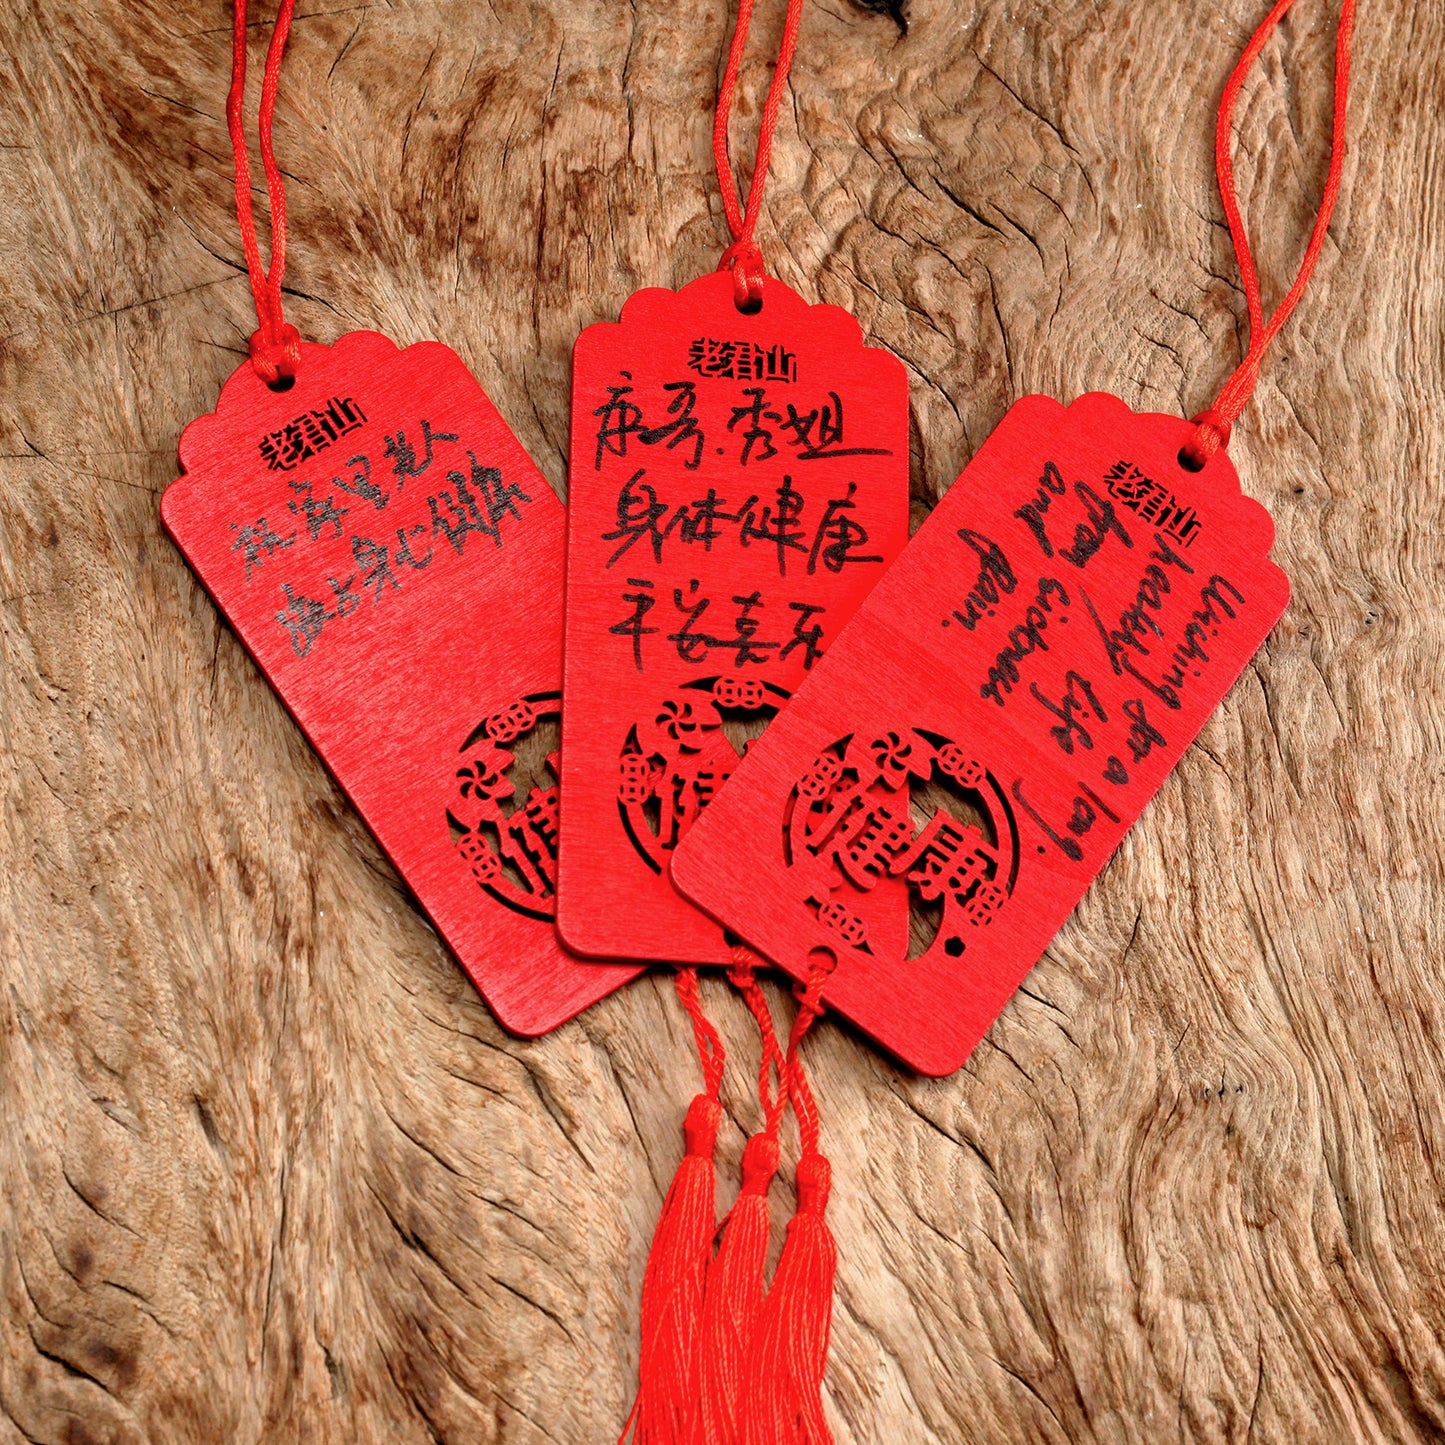 老君山
祝家里老人
身心健康
健
老君山
康哥.秀姐
身体健康
平安喜乐
健
老君山
Wishing for a long.
healthy life
sickness
and pain.
健康